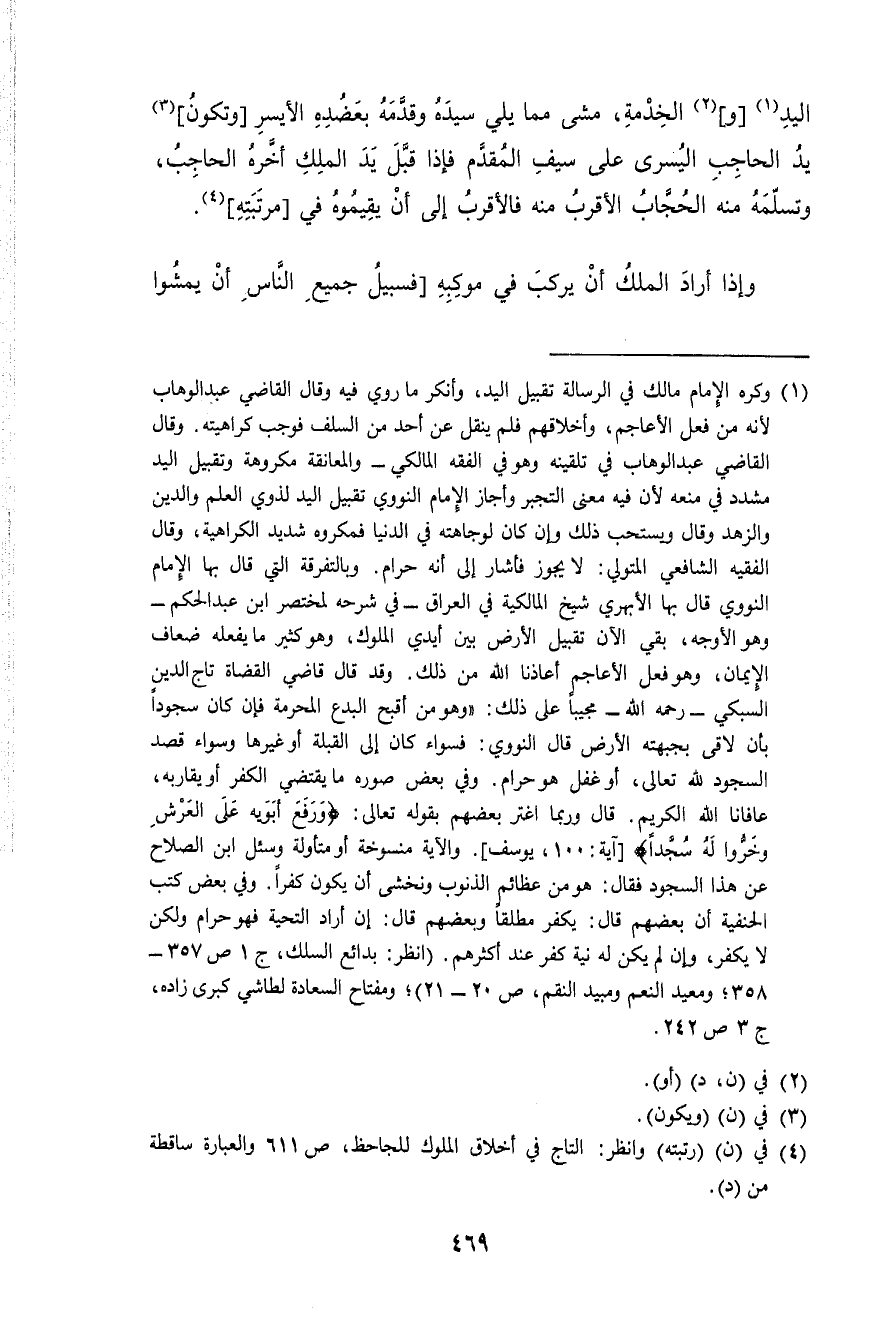 اليدِ(١) [و](٢) الخِدْمةِ، مشى مما يلي سيدَهُ وقدَّمَهُ بعَضُدِهِ الأيسرِ [وتكونُ](٣)
يدُ الحاجِبِ اليُسرى على سيفِ المُقدَّم فإذا قبَّلَ يَدَ الملِكِ أخَّرهُ الحاجبُ،
وتسلّمَهُ منه الحُجَّابُ الأقربُ منه فالأقربُ إلى أنْ يقِيمُوهُ في [مرتَبَتِهِ](٤).
وإذا أرادَ الملكُ أنْ يركبَ في موكِبِهِ [فسبيلُ جميعِ النَّاسِ أنْ يمشُوا
(١) وكره الإمام مالك في الرسالة تقبيل اليد، وأنكر ما روي فيه وقال القاضي عبدالوهاب
لأنه من فعل الأعاجم، وأخلاقهم فلم ينقل عن أحد من السلف فوجب كراهيته. وقال
القاضي عبدالوهاب في تلقينه وهو في الفقه المالكي ـ والمعانقة مكروهة وتقبيل اليد
مشدد في منعه لأن فيه معنى التجبر وأجاز الإمام النووي تقبيل اليد لذوي العلم والدين
والزهد وقال ويستحب ذلك وإن كان لوجاهته في الدنيا فمكروه شديد الكراهية، وقال
الفقيه الشافعي المتولي: لا يجوز فأشار إلى أنه حرام. وبالتفرقة التي قال بها الإمام
النووي قال بها الأبهري شيخ المالكية في العراق ـ في شرحه لمختصر ابن عبدالحكم ـ
وهو الأوجه، بقي الآن تقبيل الأرض بين أيدي الملوك، وهو كثير ما يفعله ضعاف
الإيمان، وهو فعل الأعاجم أعاذنا الله من ذلك. وقد قال قاضي القضاة تاج الدين
السبكي ـ رحمه الله ـ مجيباً على ذلك: «وهو من أقبح البدع المحرمة فإن كان سجوداً
بأن لاقى بجبهته الأرض قال النووي: فسواء كان إلى القبلة أو غيرها وسواء قصد
السجود لله تعالى، أو غفل هو حرام. وفي بعض صوره ما يقتضي الكفر أو يقاربه،
عافانا الله الكريم. قال وربما اغتر بعضهم بقوله تعالى: ﴿وَرَفَعَ أبَوَيه عَلَى العَرْشِ
وخَرُّوا لَهُ سُجَّداً﴾ [آية: ١٠٠، يوسف]. والآية منسوخة أو متأولة وسئل ابن الصلاح
عن هذا السجود فقال: هو من عظائم الذنوب ونخشى أن يكون كفراً. وفي بعض كتب
الحنفية أن بعضهم قال: يكفر مطلقاً وبعضهم قال: إن أراد التحية فهو حرام ولكن
لا يكفر، وإن لم يكن له نية كفر عند أكثرهم. (انظر: بدائع السلك، ج ١ ص ٣٥٧ ـ
٣٥٨؛ ومعيد النعم ومبيد النقم، ص ٢٠ ـ ٢١)؛ ومفتاح السعادة لطاشي كبرى زاده،
ج ٣ ص ٢٤٢.
(٢) في (ن، د) (أو).
(٣) في (ن) (ويكون).
(٤) في (ن) (رتبته) وانظر: التاج في أخلاق الملوك للجاحظ، ص ٦١١ والعبارة ساقطة
من (د).
٤٦٩